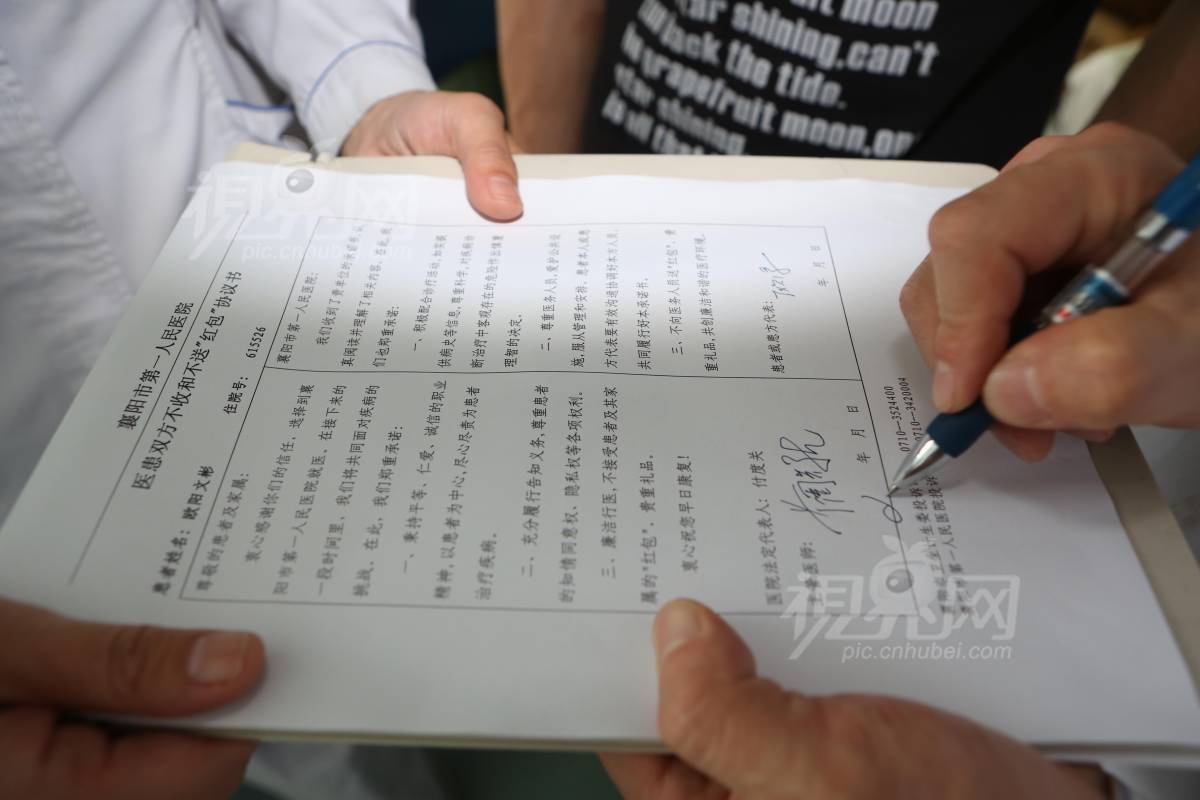 襄阳市第一人民医院
医患双方不收和不送"红包"协议书
患者姓名：欧阳文彬
住院号：615526
尊敬的患者及家属：
衷心感谢你们的信任，选择到襄
阳市第一人民医院就医。在接下来的
一段时间里，我们将共同面对疾病的
挑战。在此，我们郑重承诺：
一、秉持平等、仁爱、诚信的职业
精神，以患者为中心，尽心尽责为患者
治疗疾病。
二、充分履行告知义务，尊重患者
的知情同意权、隐私权等各项权利。
三、廉洁行医，不接受患者及其家
属的"红包"、贵重礼品。
衷心祝您早日康复！
医院法定代表人：付度关
主管医师：
年 月 日
襄阳市第一人民医院：
我们收到了贵单位的承诺书，认
真阅读并理解了相关内容。在此，我
们也郑重承诺：
一、积极配合诊疗活动，如实提
供病史等信息，尊重科学，对疾病诊
断治疗中客观存在的危险作出慎重
理智的决定。
二、尊重医务人员，爱护公共设
施，服从管理和安排。患者本人或患
方代表要有效沟通协调好本方人员，
共同履行好本承诺书。
三、不向医务人员送"红包"、贵
重礼品，共创廉洁和谐的医疗环境。
患者或患方代表：
年 月 日
生委投诉 0710-3524400
第一人民医院投诉 0710-3420004
moon
shining,can't
back the tide.
grapefruit moon,
star shining
视界网
pic.cnhubei.com
视界网
pic.cnhubei.com